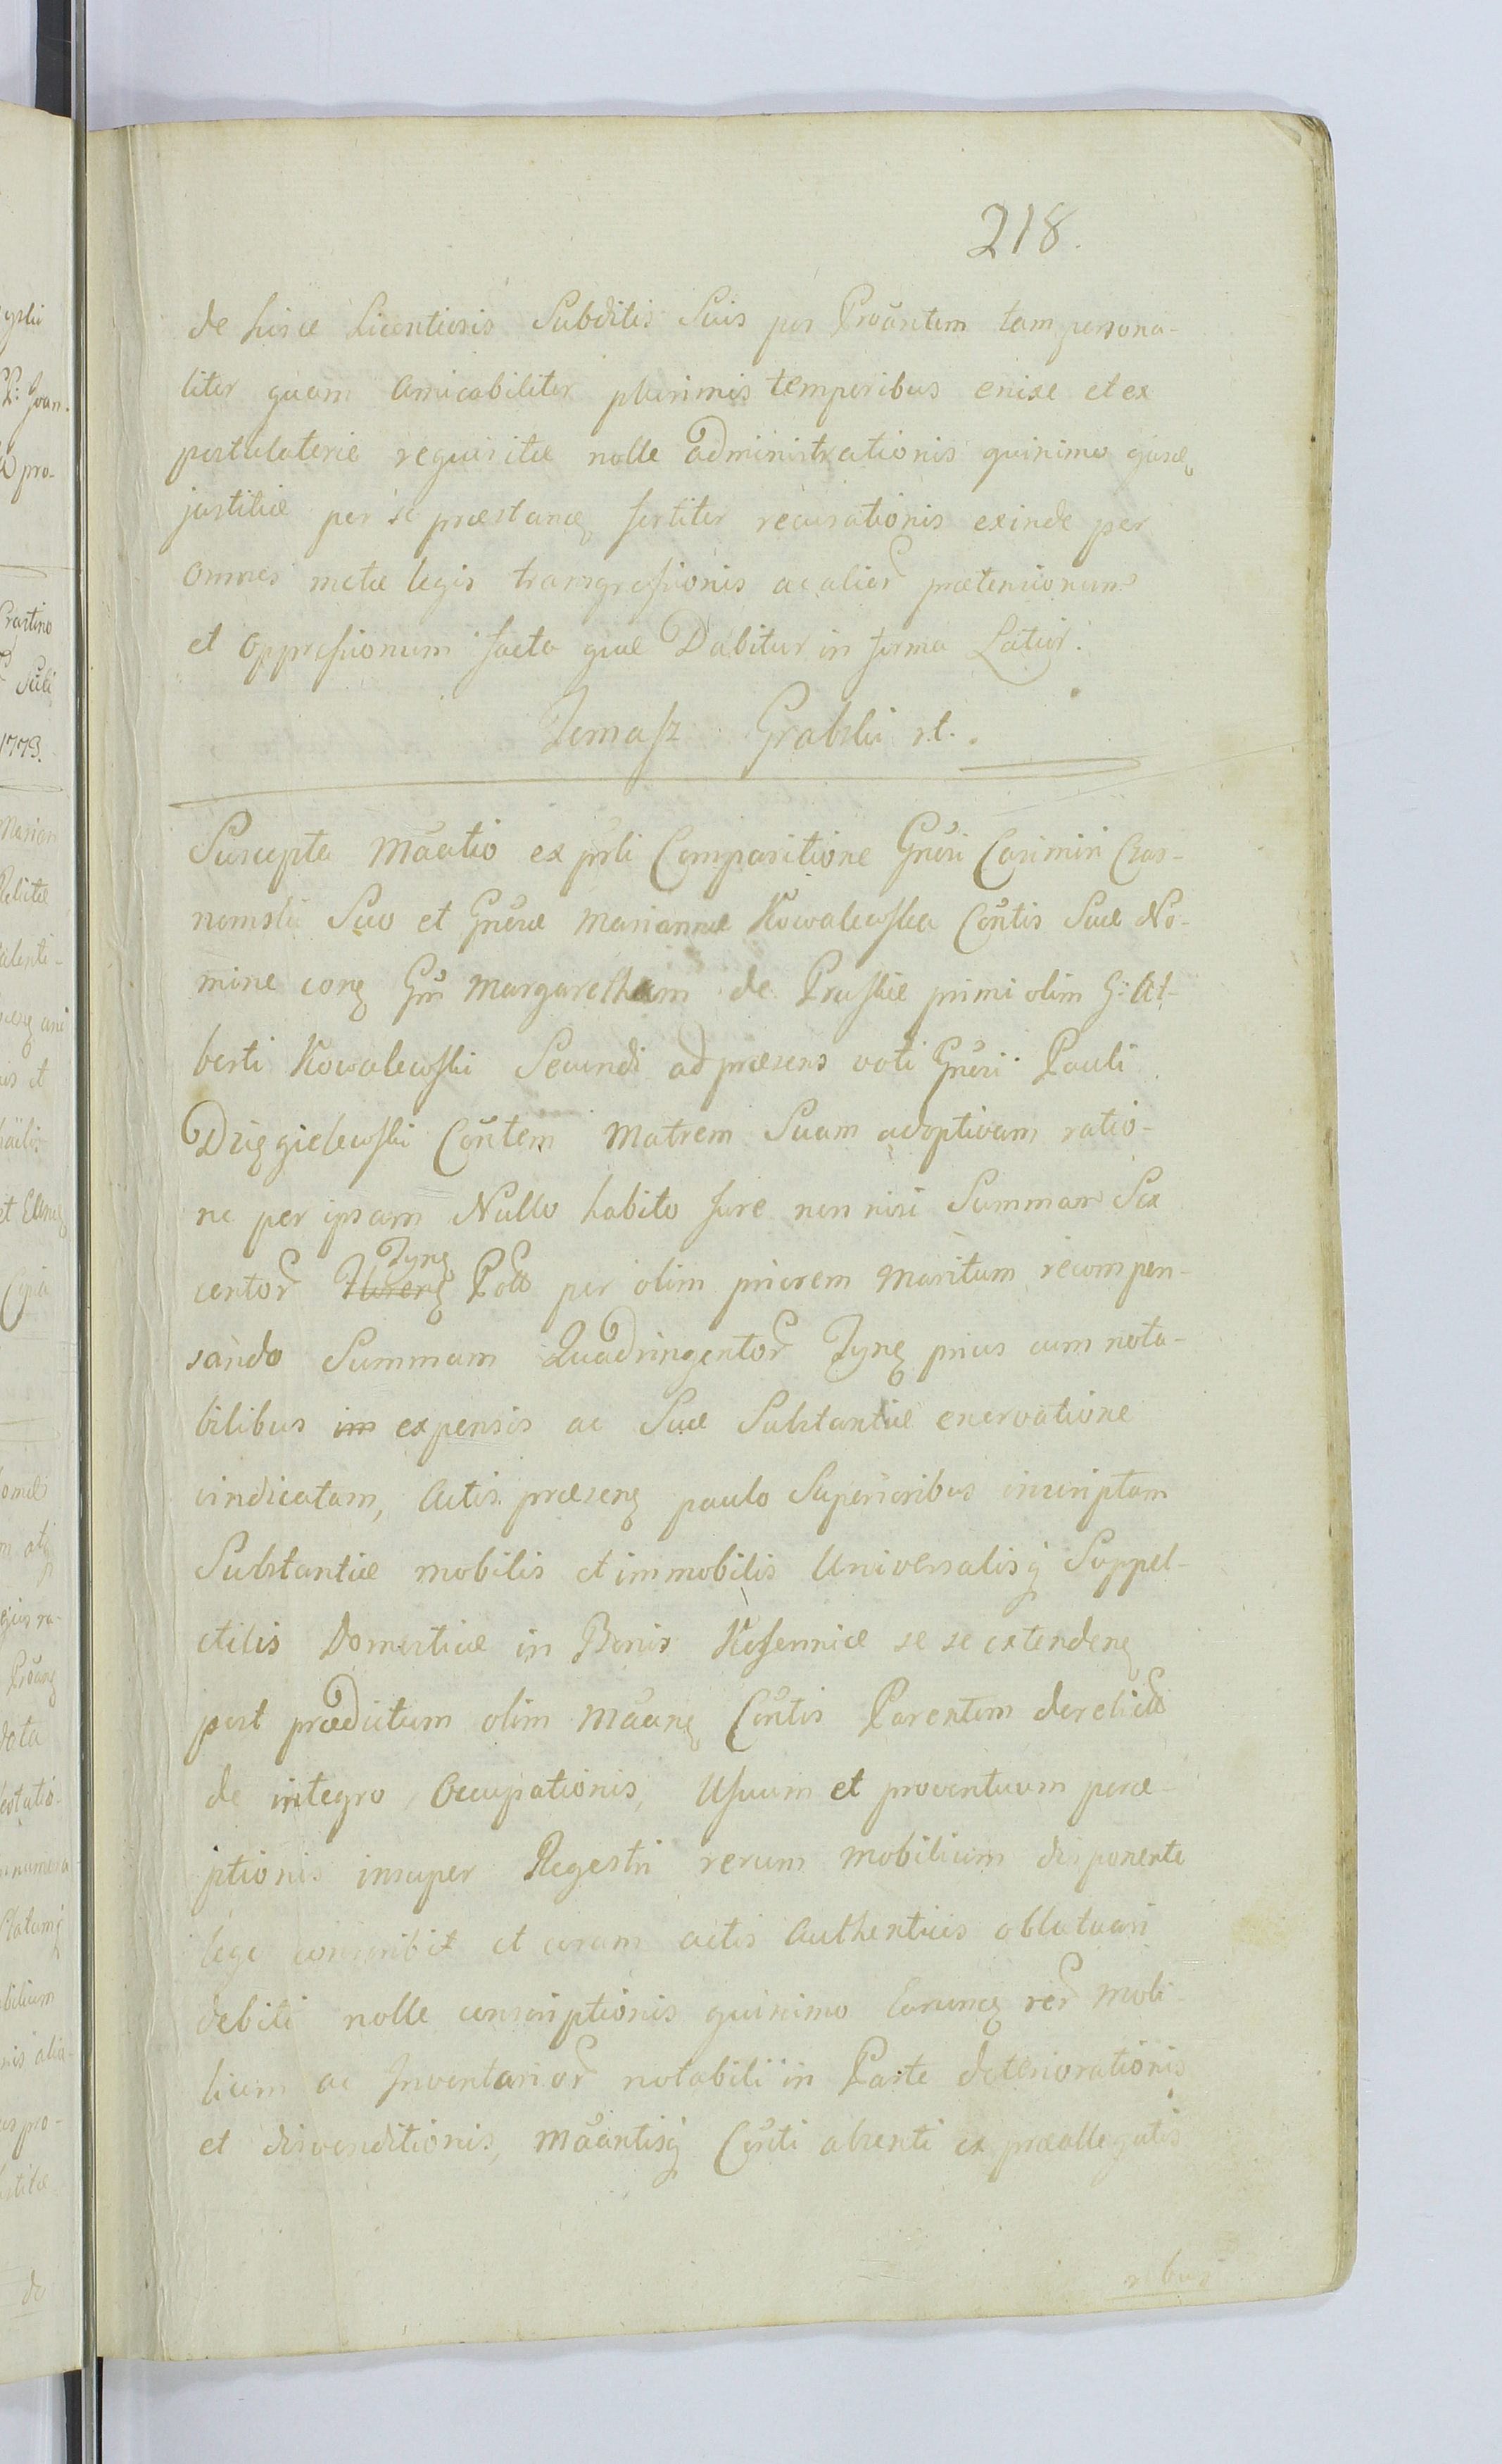 218.
de hisce Licentiosis Subditis Suis per Prõantem tam persona-
liter quam amicabiliter plurimis temporibus enixe et ex
postulatorie requisitæ nolle administrationis quinimo ejusd
justitiæ per se præstanæ fortiter recusationis exinde per
omnes metæ legis transgreſsionis ac alior prætensionum
et oppreſsionum facta quæ Dabitur in forma Latior.
Tomaſz Grabski
Suscepta Mãatio ex prsli Compositione Gnrsi Casimiri
Suo et Gnrsæ Mariannæ Kowalewſka Cõntis Suæ No-
mine Margaretham de Pruſkie primi olim G: Al-
berti Kowalewſki Secundi ad præsens voti Gnrsi Pauli
Dzięgielewſki Cõntem Matrem Suam adoptivam ratio-
ne per ipsam Nullo habito Jure non nisi Summam Sex
centor Floreng Tyng Poll per olim priorem Maritum recompen-
sando Summam Quadringentor Tyng prius cum nota-
bilibus im expensis ac Suæ Substantiæ enervatione
vindicatam, Actis præseng paulo Superioribus inscriptam
Substantiæ mobilis et immobilis Universalisq Suppel-
ctilis Domesticæ in Bonis se se extendeng
post prædictum olim Mãang Cõntis Parentem derelict
de integro Occupationis, Uſuum et proventuum perce-
ptionis insuper Regestri rerum mobilium disponente
lege conscribi et coram actis Authenticis oblatuari
debiti nolle conscriptionis quinimo rer mobi-
lium ac Inventarior notabili in Parte deteriorationis
et disvenditionis, Mãantisq Cõnti absenti ex præallegatis
rebus